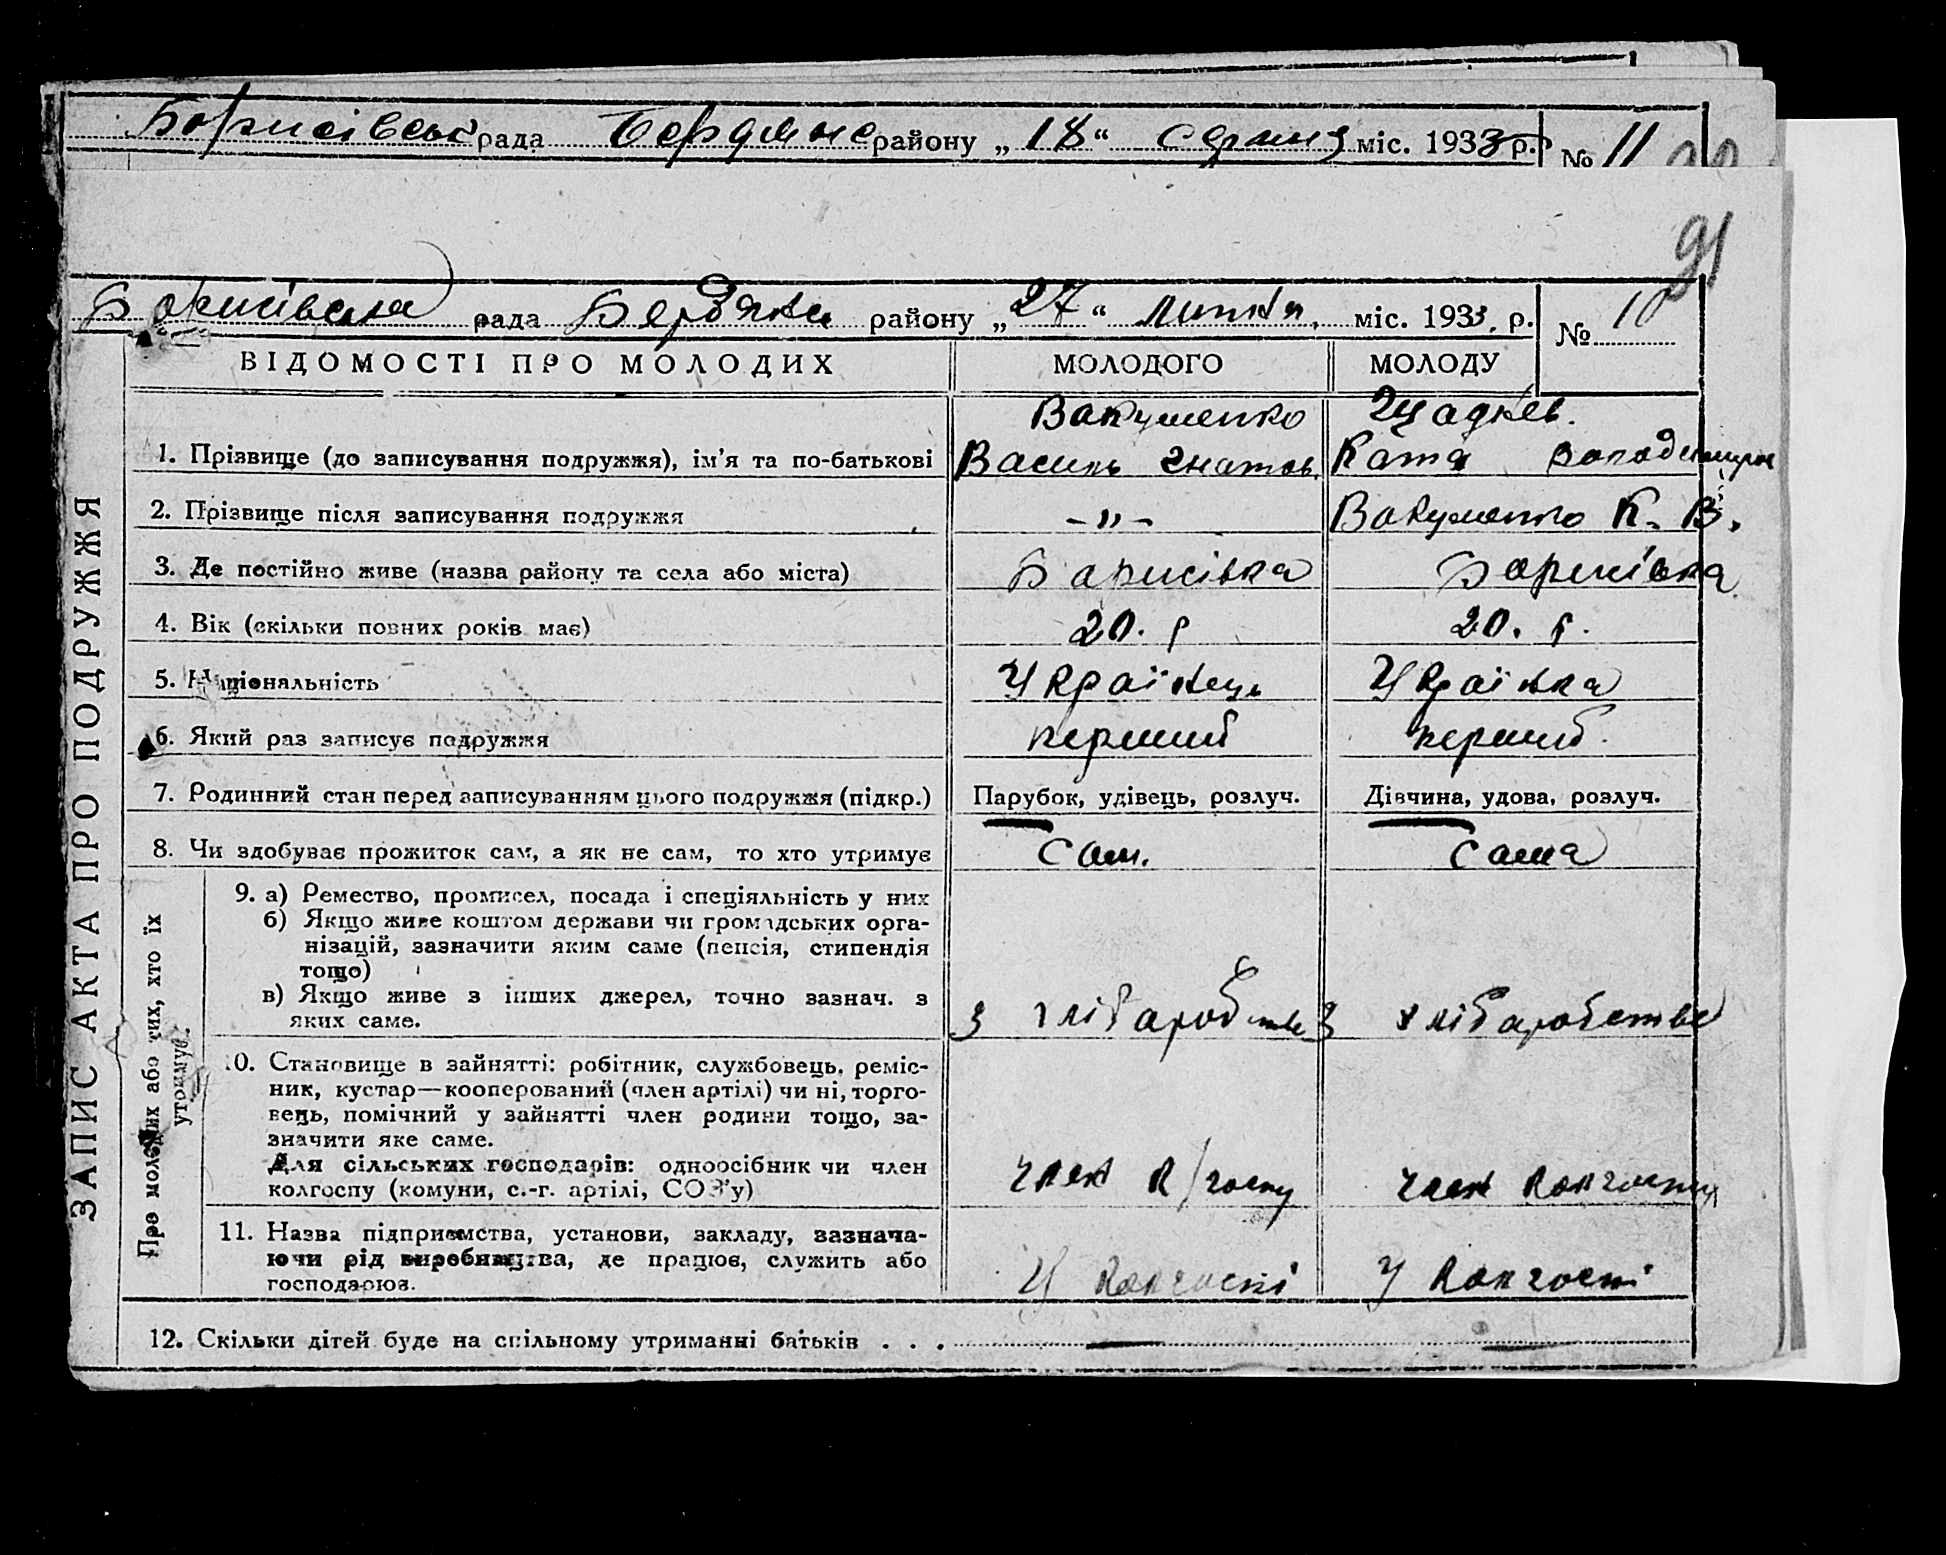 Борисівськ рада Бердянс району „18“ серпня міс. 1933 р. № 11
91
Борисівська рада Бердянськ району „27“ липня міс. 1933 р. № 10
ВІДОМОСТІ ПРО МОЛОДИХ МОЛОДОГО МОЛОДУ
Вакуменко
1. Прізвище (до записування подружжя), ім’я та по-батькові Василь Гнатов. Катя Володимир
2. Прізвище після записування подружжя –„– Вакуменко К. В.
3. Де постійно живе (назва району та села або міста) Борисівка Борисівка
4. Вік (скільки повних років має) 20. р 20. р.
5. Національність Українець Українка
6. Який раз записує подружжя перший перший.
7. Родинний стан перед записуванням цього подружжя (підкр.) Парубок, удівець, розлуч. Дівчина, удова, розлуч.
8. Чи здобуває прожиток сам, а як не сам, то хто утримує Сам. Сама
ЗАПИС АКТА ПРО ПОДРУЖЖЯ
Про молодих або тих, хто їх
утримує.
9. а) Ремество, промисел, посада і спеціяльність у них
б) Якщо живе коштом держави чи громадських орга-
нізацій, зазначити яким саме (пенсія, стипендія
тощо)
в) Якщо живе з інших джерел, точно зазнач. з
яких саме. З хлібаробства З хлібаробства
10. Становище в зайнятті: робітник, службовець, реміс-
ник, кустар—кооперований (член артілі) чи ні, торго-
вець, помічний у зайнятті член родини тощо, за-
значити яке саме.
Для сільських господарів: одноосібник чи член
колгоспу (комуни, с.-г. артілі, СОЗ’у) член к/госпу член колгоспу
11. Назва підприємства, установи, закладу, зазнача-
ючи рід виробництва, де працює, служить або
господарює. У колгоспі У колгоспі
12. Скільки дітей буде на спільному утриманні батьків . . . — —